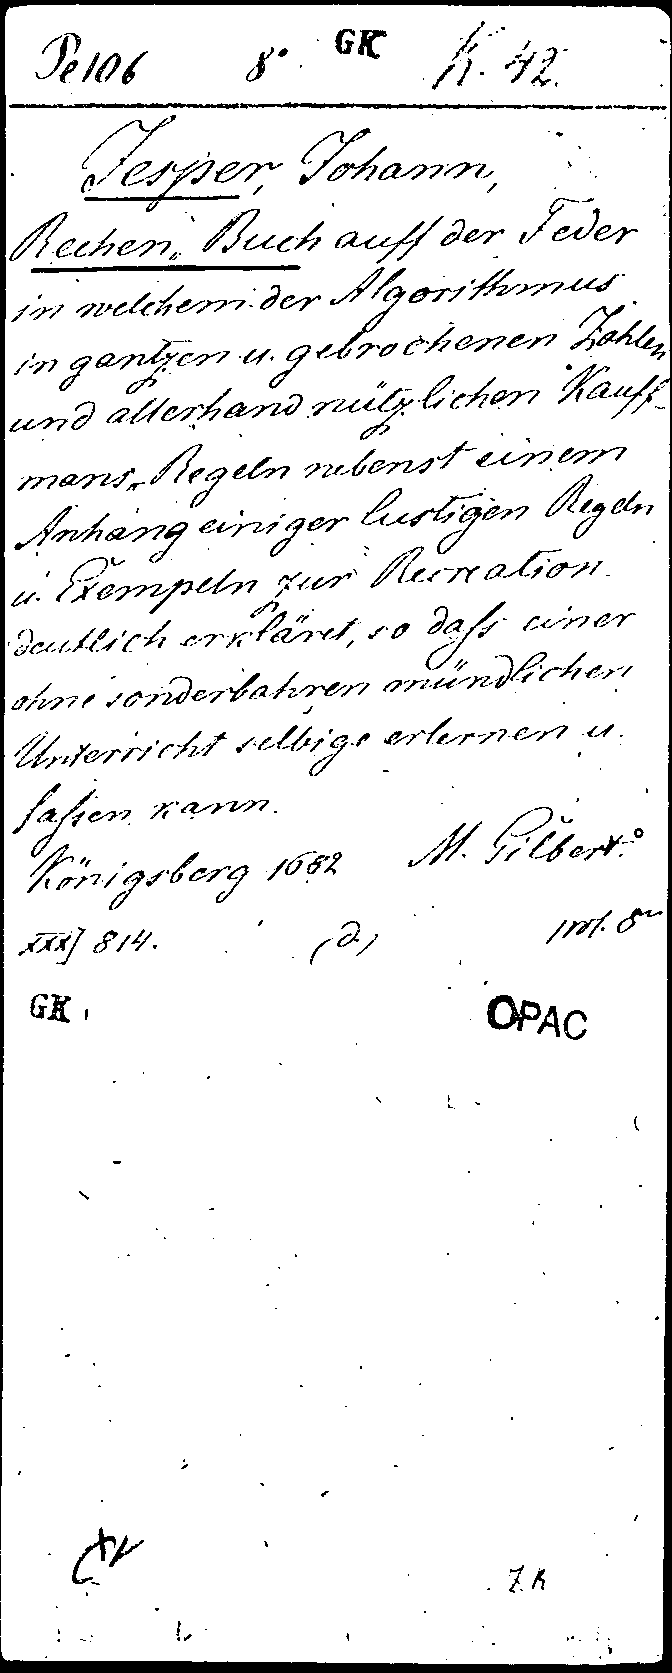 Pe 106 8° GK K. 42.
Jesper, Johann,
Rechen„ Buch auff der Feder
in welchem der Algorithmus
in gantzen u. gebrochenen Zahlen
und allerhand nützlichen Kauff-
mans„ Regeln nebenst einem
Anhang einiger lustigen Regeln
u. Exempeln zur Recreation
deutlich erkläret, so dass einer
ohne sonderbahren mündlichen
Unterricht selbige erlernen u.
fassen kann.
Königsberg 1682 M. Gilbert.°
XXX] 814. (d.)
GK OPAC
Z. K